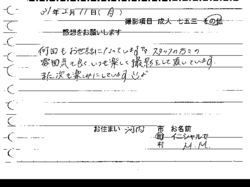 31年2月11日(月)
撮影項目 成人 七五三 その他
感想をお願いします
何回もお世話になっています。スタッフの方々の
雰囲気も良く、いつも楽しく撮影をして頂いています。
また次も楽しみにしています。
お住まい 河内 市 お名前
町 イニシャルで
村 M.M.